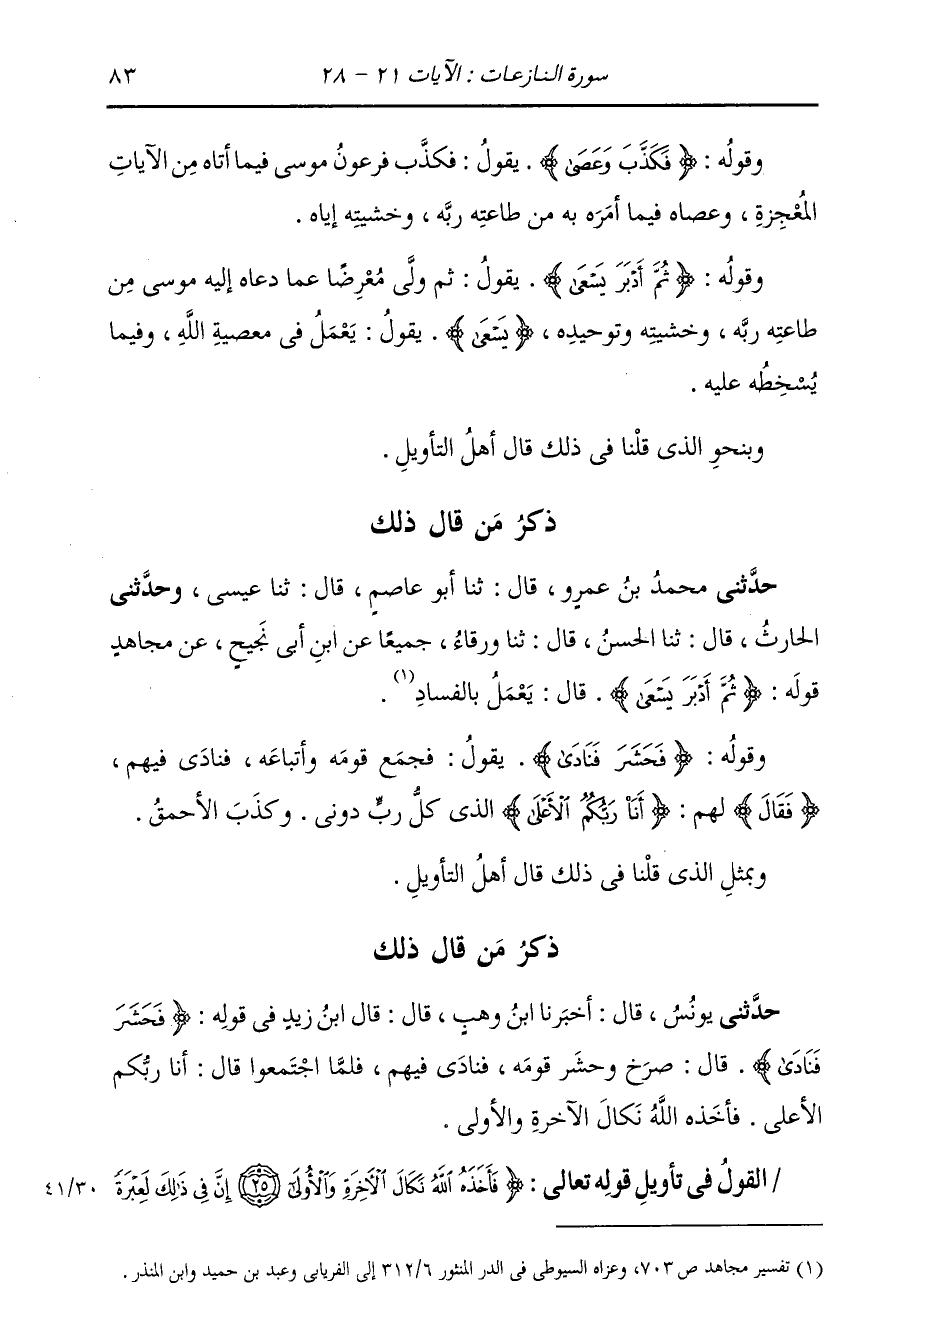 سورة النازعات : الآيات ٢١ - ٢٨ ٨٣
وقولُه : ﴿ فَكَذَّبَ وَعَصَىٰ ﴾ . يقولُ : فكذَّب فرعونُ موسى فيما أتاه مِن الآياتِ
المُعْجِزةِ ، وعصاه فيما أمَرَه به من طاعتِه ربَّه ، وخشيتِه إياه .
وقولُه : ﴿ ثُمَّ أَدْبَرَ يَسْعَىٰ ﴾ . يقولُ : ثم ولَّى مُعْرِضًا عما دعاه إليه موسى مِن
طاعتِه ربَّه ، وخشيتِه وتوحيدِه ، ﴿ يَسْعَىٰ ﴾ . يقولُ : يَعْمَلُ فى معصيةِ اللَّهِ ، وفيما
يُسْخِطُه عليه .
وبنحوِ الذى قلْنا فى ذلك قال أهلُ التأويلِ .
ذكرُ مَن قال ذلك
حدَّثنى محمدُ بنُ عمرٍو ، قال : ثنا أبو عاصمٍ ، قال : ثنا عيسى ، وحدَّثنى
الحارثُ ، قال : ثنا الحسنُ ، قال : ثنا ورقاءُ ، جميعًا عن ابنِ أبى نَجيحٍ ، عن مجاهدٍ
قولَه : ﴿ ثُمَّ أَدْبَرَ يَسْعَىٰ ﴾ . قال : يَعْمَلُ بالفسادِ(١) .
وقولُه : ﴿ فَحَشَرَ فَنَادَىٰ ﴾ . يقولُ : فجمَع قومَه وأتباعَه ، فنادَى فيهم ،
﴿ فَقَالَ ﴾ لهم : ﴿ أَنَا۠ رَبُّكُمُ ٱلْأَعْلَىٰ ﴾ الذى كلُّ ربٍّ دونى . وكذَبَ الأحمقُ .
وبمثلِ الذى قلْنا فى ذلك قال أهلُ التأويلِ .
ذكرُ مَن قال ذلك
حدَّثنى يونُسُ ، قال : أخبَرنا ابنُ وهبٍ ، قال : قال ابنُ زيدٍ فى قولِه : ﴿ فَحَشَرَ
فَنَادَىٰ ﴾ . قال : صرَخ وحشَر قومَه ، فنادَى فيهم ، فلمَّا اجْتمعوا قال : أنا ربُّكم
الأعلى . فأخَذه اللَّهُ نَكالَ الآخرةِ والأولى .
/ القولُ فى تأويلِ قولِه تعالى : ﴿ فَأَخَذَهُ ٱللَّهُ نَكَالَ ٱلْآخِرَةِ وَٱلْأُولَىٰٓ ٢٥ إِنَّ فِى ذَٰلِكَ لَعِبْرَةً ٤١/٣٠
(١) تفسير مجاهد ص ٧٠٣، وعزاه السيوطى فى الدر المنثور ٣١٢/٦ إلى الفريابى وعبد بن حميد وابن المنذر .